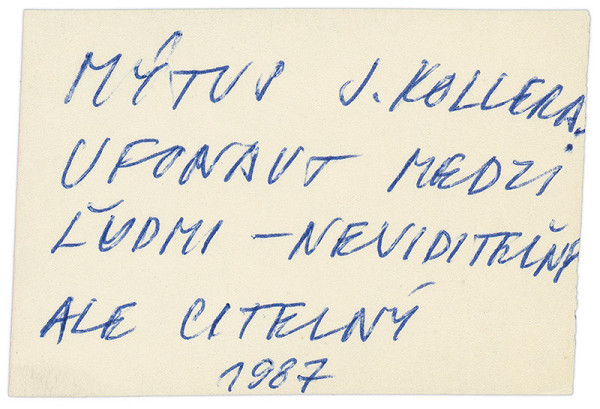 MÝTUS J. KOLLERA.
UFONAUT MEDZI
ĽUDMI – NEVIDITEĽNÝ
ALE CITELNÝ
1987